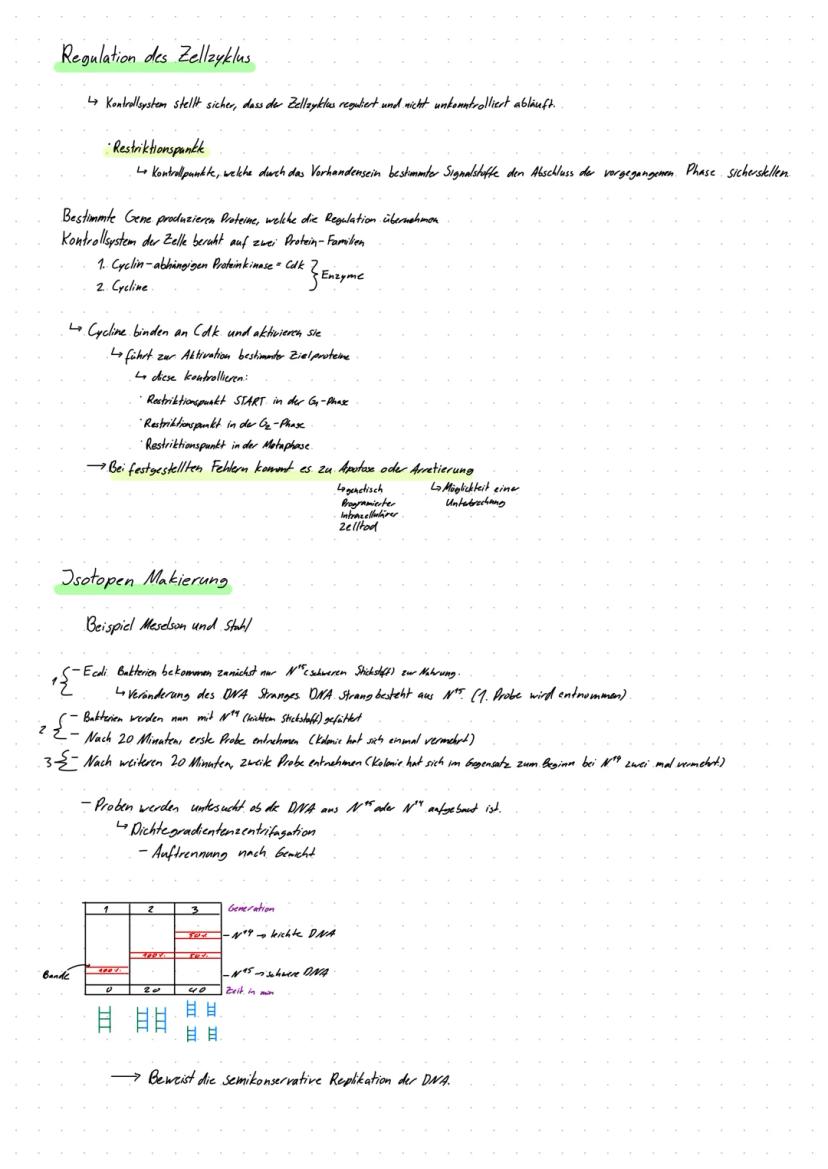 Regulation des Zellzyklus
↳ Kontrollsystem stellt sicher, dass der Zellzyklus reguliert und nicht unkonntrolliert abläuft.
· Restriktionspunkk
↳ Kontrollpunkte, welche durch das Vorhandensein bestimmter Signalstoffe den Abschluss der vorgegangenen Phase sicherstellen.
Bestimmte Gene produzieren Proteine, welche die Regulation übernehmen
Kontrollsystem der Zelle beruht auf zwei Protein-Familien
1. Cyclin-abhängigen Proteinkinase = Cdk } Enzyme
2. Cycline
↳ Cycline binden an Cdk und aktivieren sie
↳ führt zur Aktivation bestimmter Zielproteine
↳ diese kontrollieren:
· Restriktionspunkt START in der G1-Phase
· Restriktionspunkt in der G2-Phase
· Restriktionspunkt in der Metaphase
→ Bei festgestellten Fehlern kommt es zu Apotose oder Arretierung
↳ genetisch ↳ Möglichkeit einer
Programierter Unterbrechung
Intrazellulärer
Zelltod
Isotopen Makierung
Beispiel Meselson und Stahl
1 { - Ecoli Bakterien bekommen zunächst nur N¹⁵ (schweren Stickstoff) zur Nahrung.
↳ Veränderung des DNA Stranges. DNA Strang besteht aus N¹⁵. (1. Probe wird entnommen)
2 { - Bakterien werden nun mit N¹⁴ (leichtem Stickstoff) gefüttert
- Nach 20 Minuten, erste Probe entnehmen (Kolonie hat sich einmal vermehrt)
3 { - Nach weiteren 20 Minuten, zweite Probe entnehmen (Kolonie hat sich im Gegensatz zum Beginn bei N¹⁴ zwei mal vermehrt)
- Proben werden untersucht ob die DNA aus N¹⁵ oder N¹⁴ aufgebaut ist.
↳ Dichtegradientenzentrifugation
- Auftrennung nach Gewicht
1 2 3 Generation
50% - N¹⁴ → leichte DNA
100% 50%
Bande 100% - N¹⁵ → schwere DNA
0 20 40 Zeit in min
→ Beweist die semikonservative Replikation der DNA.